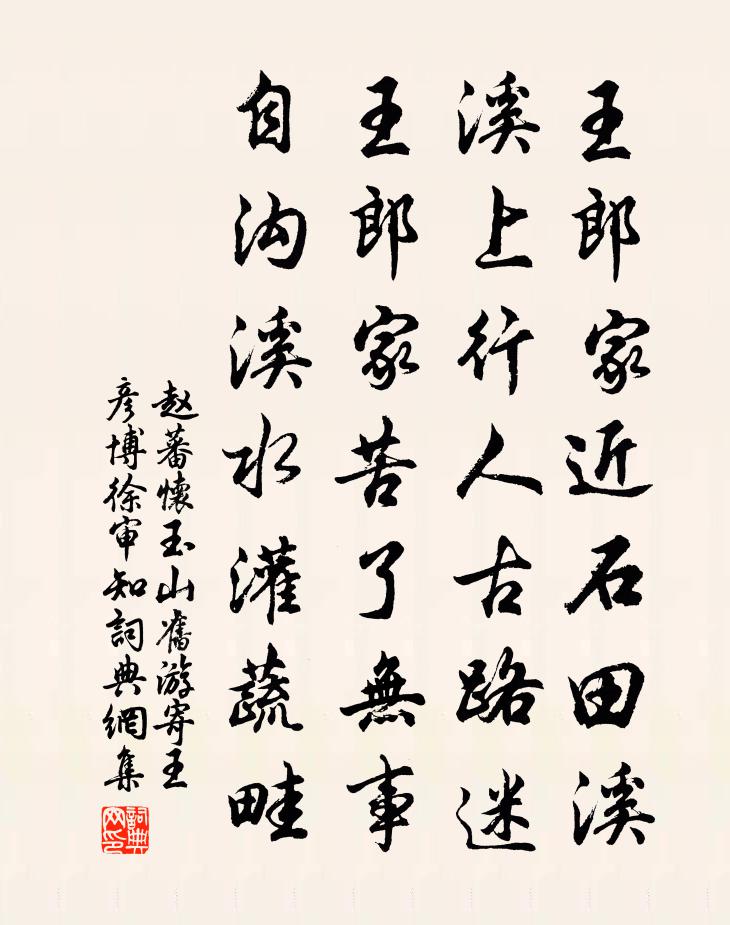 王郎家近石田溪
溪上行人古路迷
王郎家苦了無事
自沟溪水灌蔬畦
赵蕃懷玉山舊游寄王
彦博徐审知詞典網集
詞典網印